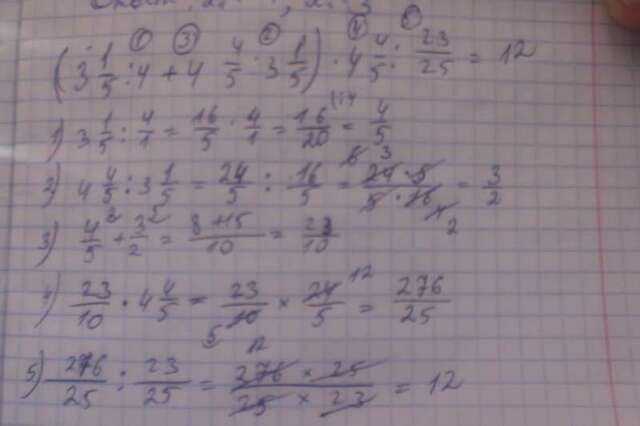 (3 1/5 : 4 + 4 4/5 : 3 1/5) · 4 4/5 : 23/25 = 12
1) 3 1/5 : 4/1 = 16/5 · 4/1 = 16/20 = 4/5
2) 4 4/5 : 3 1/5 = 24/5 : 16/5 = 24 · 5/5 · 16 = 3/2
3) 4/5 + 3/2 = 8+15/10 = 23/10
4) 23/10 · 4 4/5 = 23/10 × 24/5 = 276/25
5) 276/25 : 23/25 = 276 × 25/25 × 23 = 12